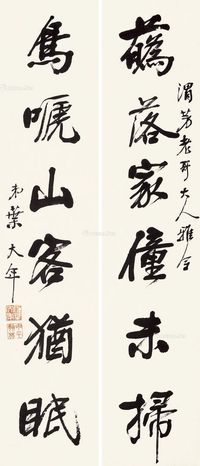 渭芳老哥大人雅令
蘤落家僮未掃
鳥嗁山客猶眠
弟葉大年